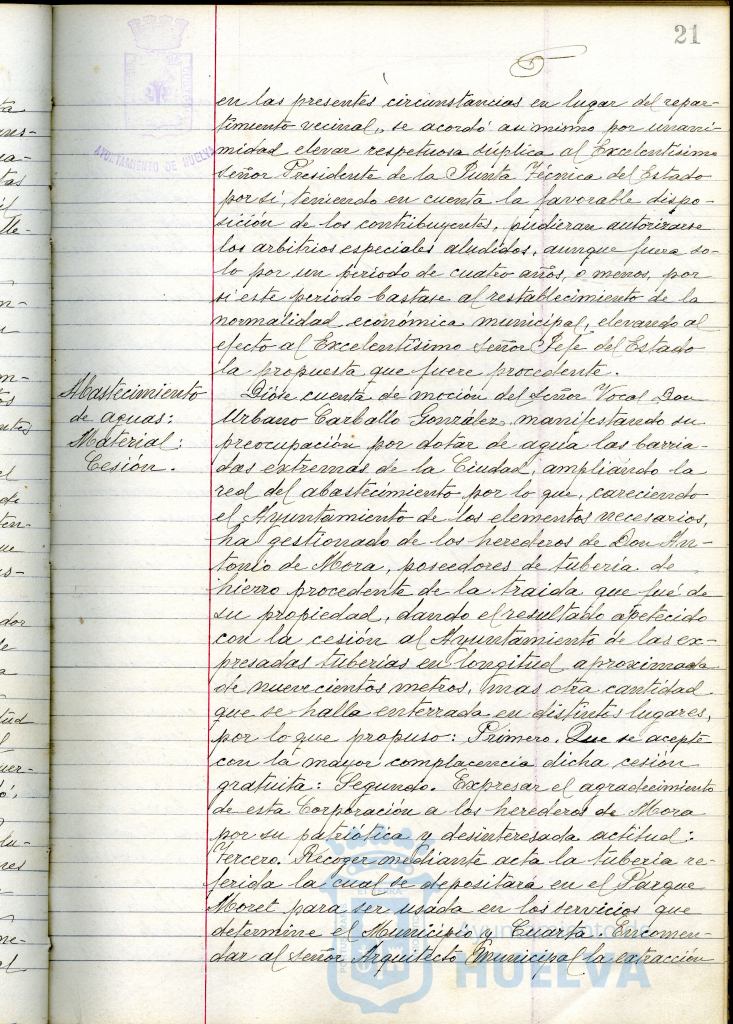 21
AYUNTAMIENTO DE HUELVA
en las presentes circunstancias en lugar del repar-
timiento vecinal, se acordó asimismo por unani-
midad elevar respetuosa súplica al Excelentísimo
Señor Presidente de la Junta Técnica del Estado
por si, teniendo en cuenta la favorable dispo-
sición de los contribuyentes, pudieran autorizarse
los arbitrios especiales aludidos, aunque fuera so-
lo por un período de cuatro años, o menos, por
si este período bastase al restablecimiento de la
normalidad económica municipal, elevando al
efecto al Excelentísimo Señor Jefe del Estado
la propuesta que fuere procedente.
Abastecimiento
de aguas:
Material:
Cesión.
Dióse cuenta de moción del Señor Vocal Don
Urbano Carballo González, manifestando su
preocupación por dotar de agua las barria-
das extremas de la Ciudad, ampliando la
red del abastecimiento por lo que, careciendo
el Ayuntamiento de los elementos necesarios,
ha gestionado de los herederos de Don An-
tonio de Mora, poseedores de tubería de
hierro procedente de la traida que fué de
su propiedad, dando el resultado apetecido
con la cesión al Ayuntamiento de las ex-
presadas tuberías en longitud aproximada
de nuevecientos metros, mas otra cantidad
que se halla enterrada en distintos lugares,
por lo que propuso: Primero. Que se acepte
con la mayor complacencia dicha cesión
gratuita: Segundo. Expresar el agradecimiento
de esta Corporación a los herederos de Mora
por su patriótica y desinteresada actitud:
Tercero. Recoger mediante acta la tubería re-
ferida la cual se depositará en el Parque
Moret para ser usada en los servicios que
determine el Municipio. Cuarto. Encomen-
dar al Señor Arquitecto Municipal la extracción
Ayuntamiento de
HUELVA